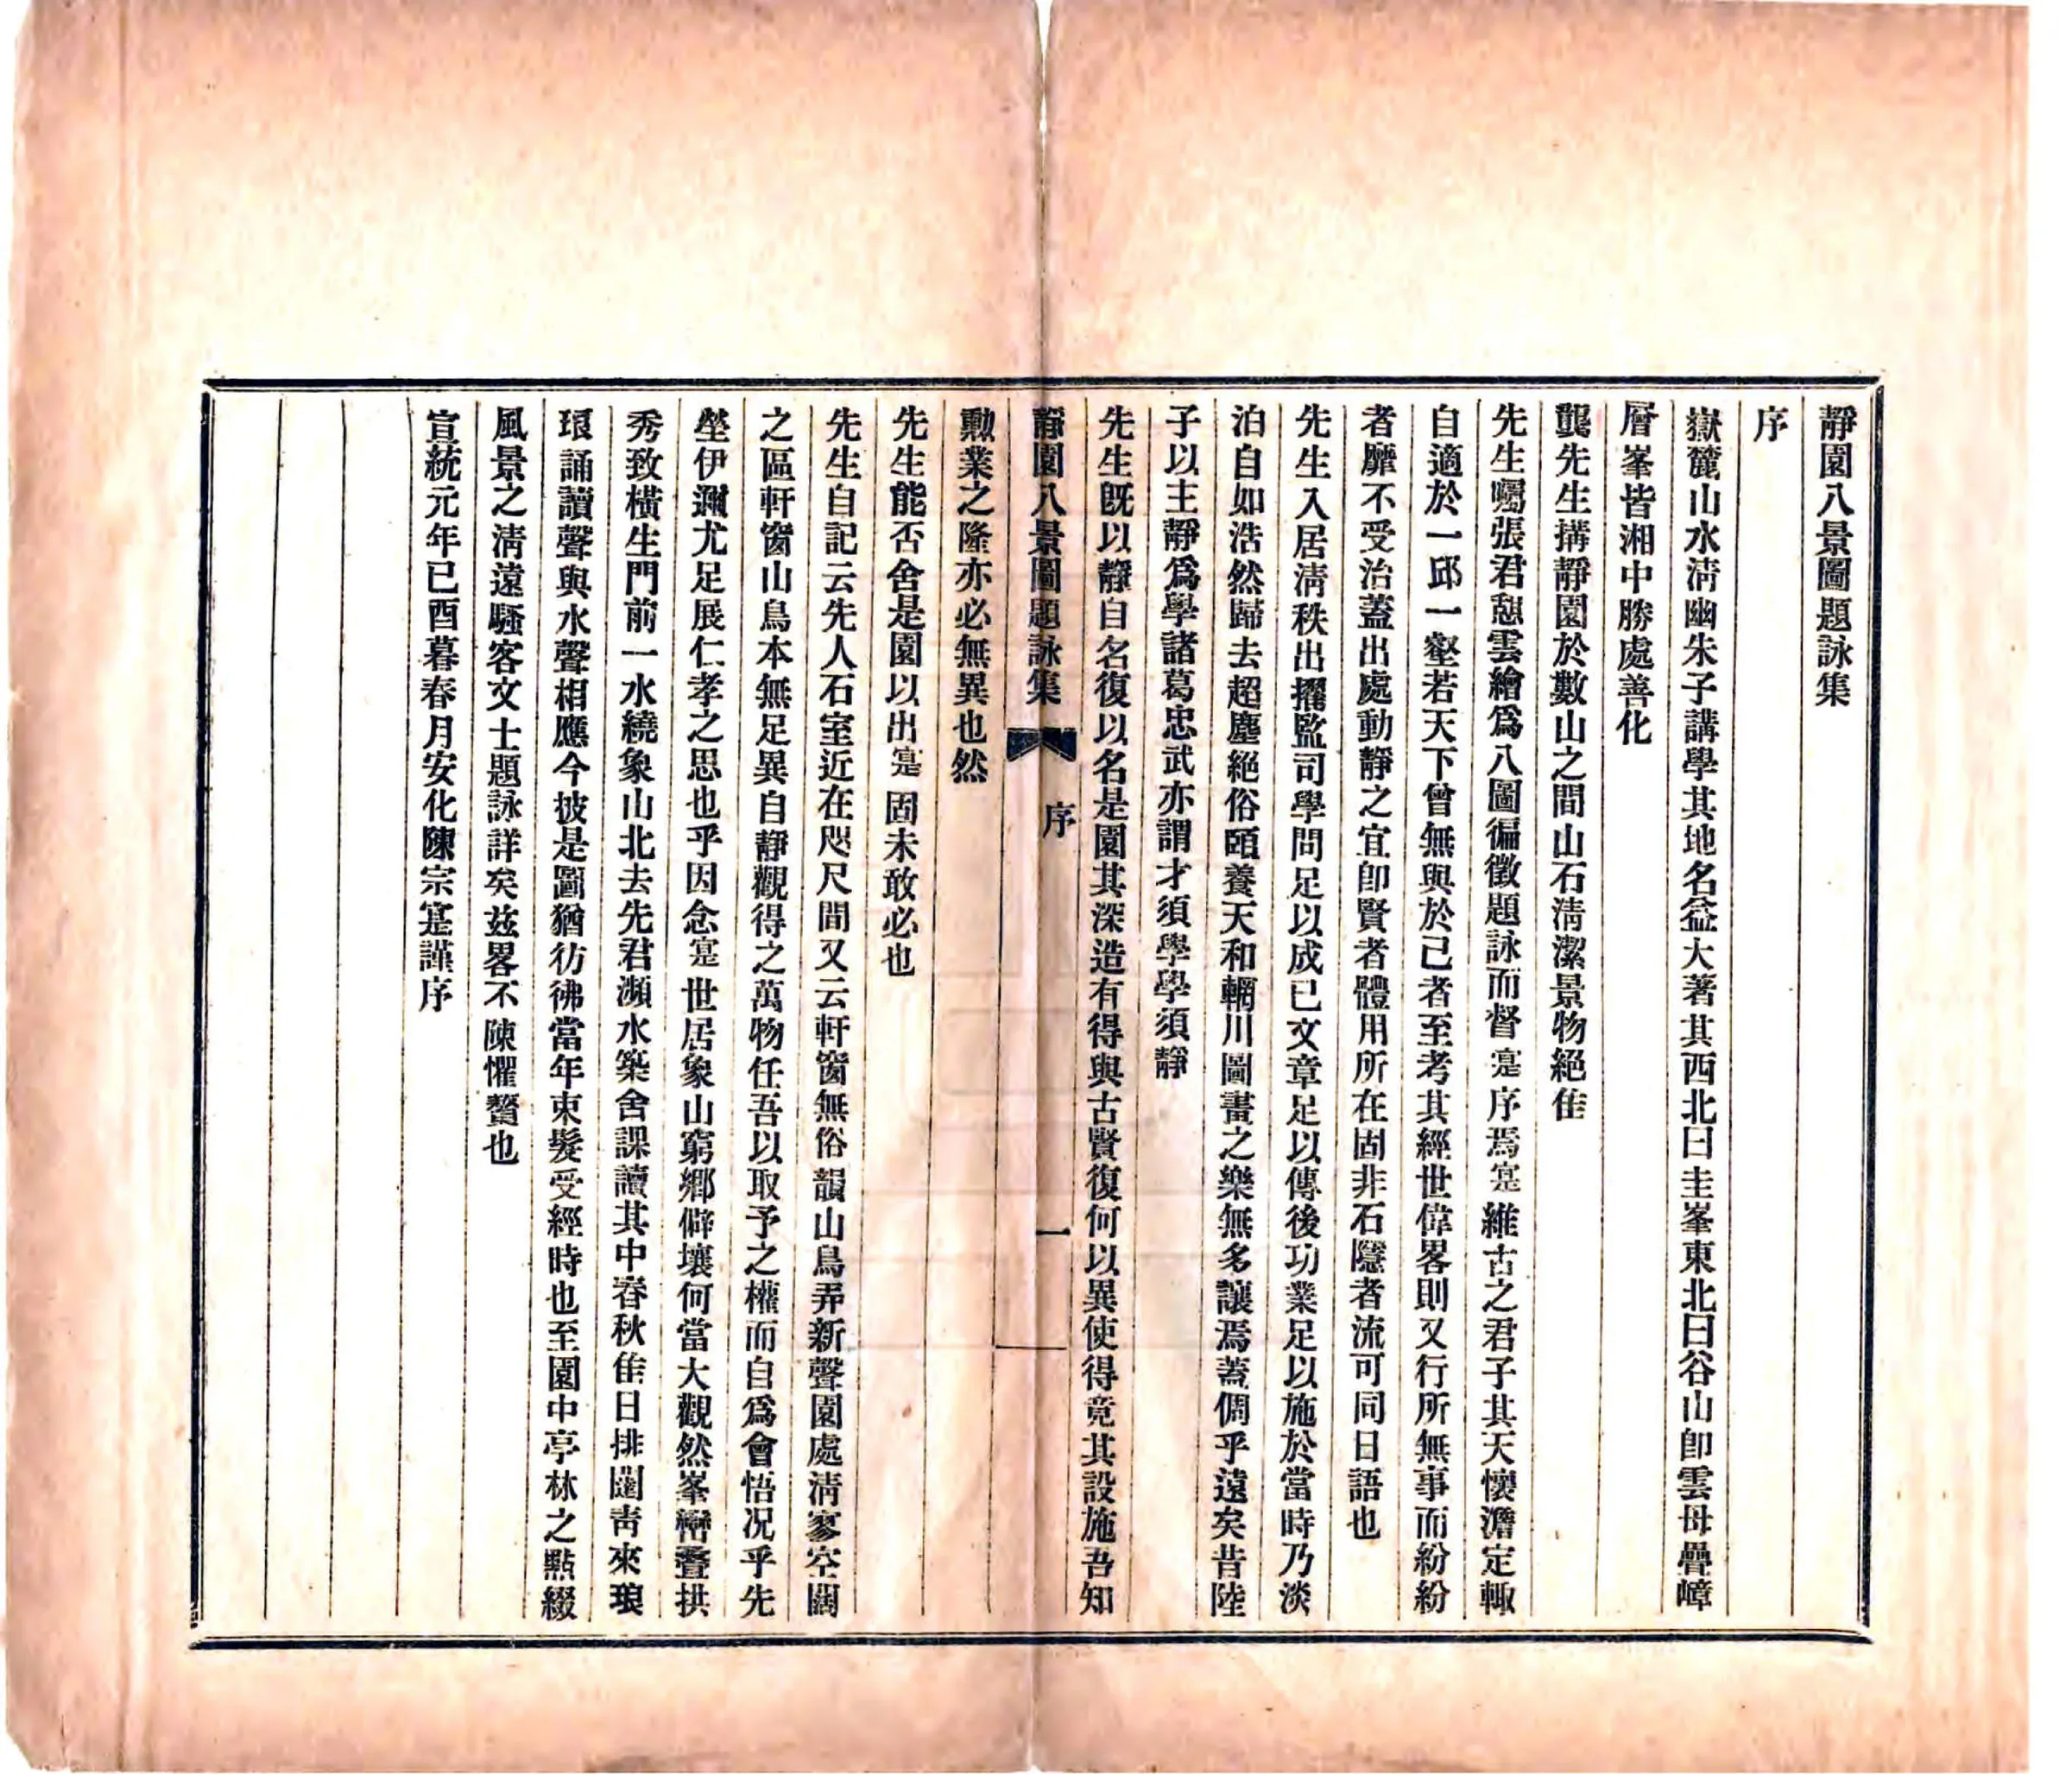 靜園八景圖題詠集
序
嶽麓山水淸幽朱子講學其地名益大著其西北曰圭峯東北曰谷山卽雲母疊嶂
層峯皆湘中勝處善化
龔先生搆靜園於數山之間山石淸潔景物絕佳
先生囑張君憩雲繪爲八圖徧徵題詠而督寔序焉寔維古之君子其天懷澹定輙
自適於一邱一壑若天下曾無與於己者至考其經世偉畧則又行所無事而紛紛
者靡不受治蓋出處動靜之宜卽賢者體用所在固非石隱者流可同日語也
先生入居淸秩出擢監司學問足以成己文章足以傳後功業足以施於當時乃淡
泊自如浩然歸去超塵絕俗頤養天和輞川圖畫之樂無多讓焉蓋倜乎遠矣昔陸
子以主靜爲學諸葛忠武亦謂才須學學須靜
先生旣以靜自名復以名是園其深造有得與古賢復何以異使得竟其設施吾知
靜園八景圖題詠集 序 一
勳業之隆亦必無異也然
先生能否舍是園以出寔固未敢必也
先生自記云先人石室近在咫尺間又云軒窗無俗韻山鳥弄新聲園處淸寥空闊
之區軒窗山鳥本無足異自靜觀得之萬物任吾以取予之權而自爲會悟况乎先
塋伊邇尤足展仁孝之思也乎因念寔世居象山窮鄉僻壤何當大觀然峯巒疊拱
秀致橫生門前一水繞象山北去先君瀕水築舍課讀其中春秋佳日排闥靑來琅
琅誦讀聲與水聲相應今披是圖猶彷彿當年束髮受經時也至園中亭林之點綴
風景之淸遠騷客文士題詠詳矣玆畧不陳懼贅也
宣統元年己酉暮春月安化陳宗寔謹序